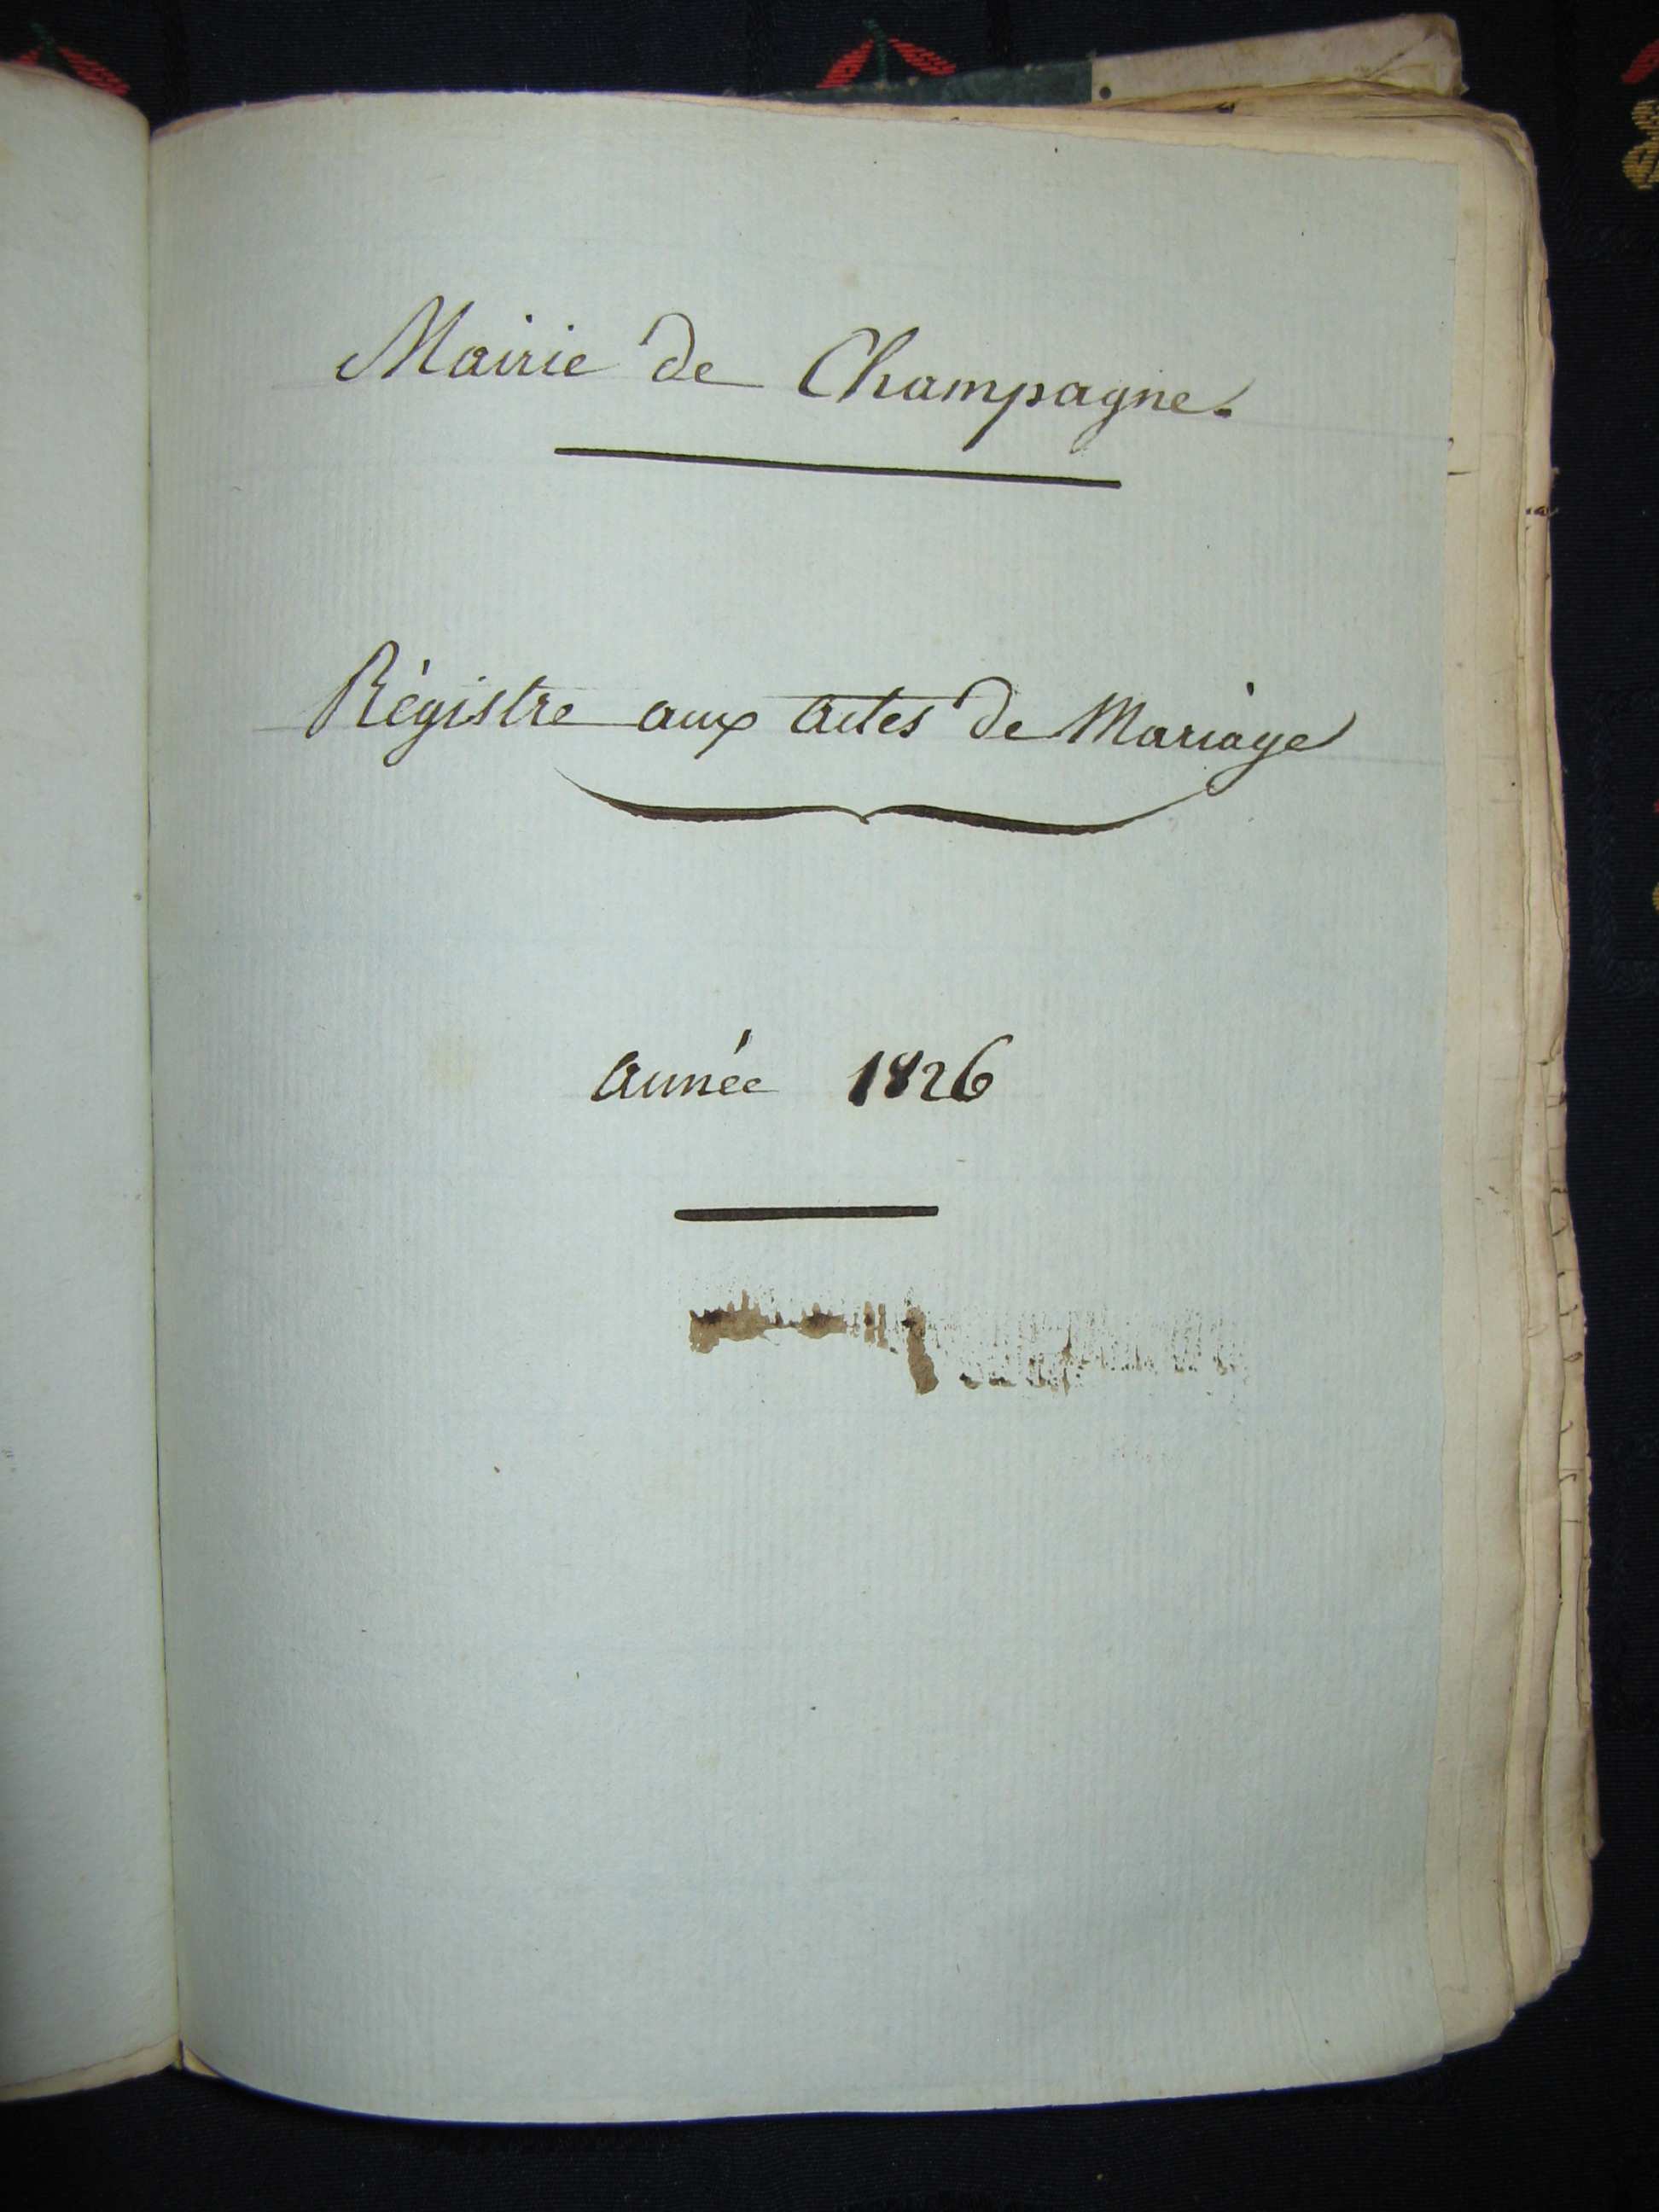 Mairie de Champagne.
Régistre aux actes de Mariage
année 1826